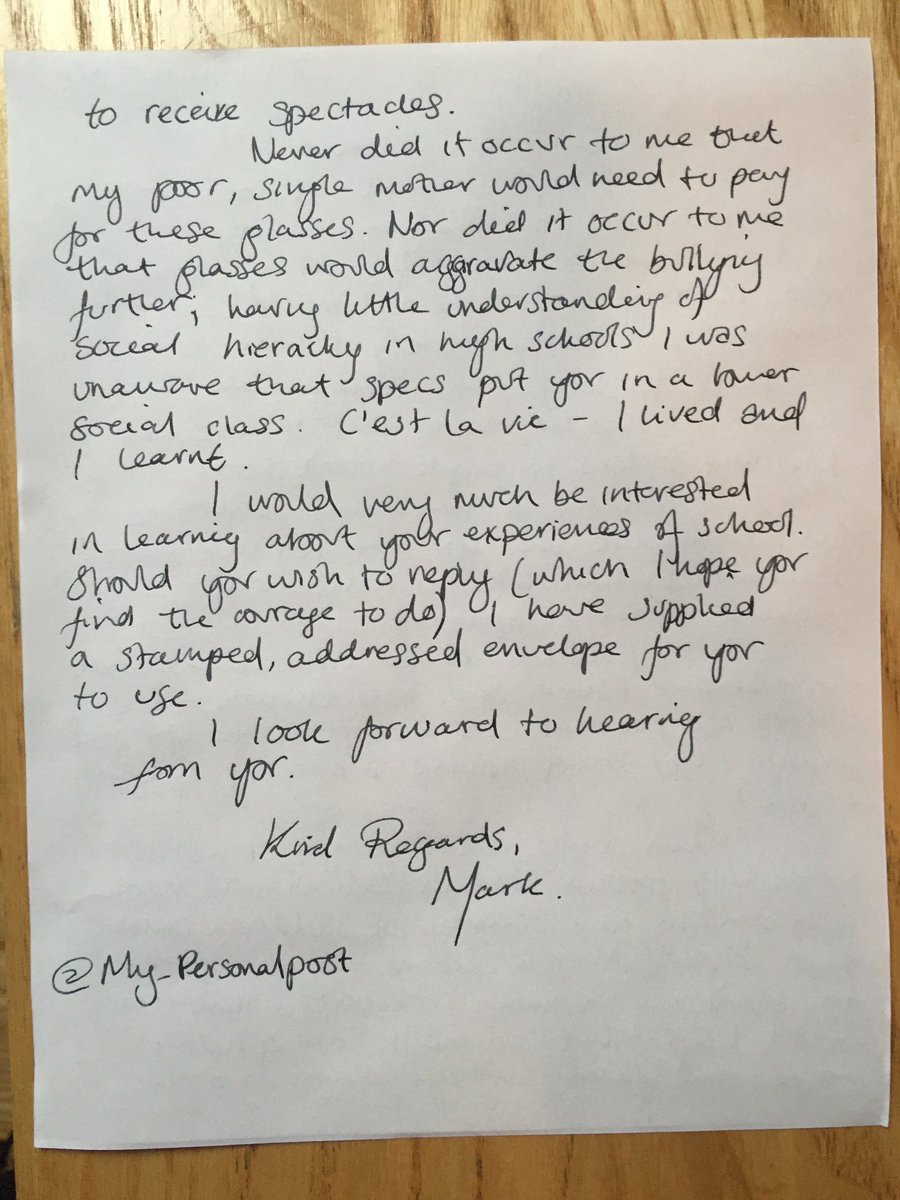 to receive spectacles.
Never did it occur to me that
my poor, single mother would need to pay
for these glasses. Nor did it occur to me
that glasses would aggravate the bullying
further; having little understanding of
social hierachy in high schools I was
unaware that specs put you in a lower
social class. C'est la vie - I lived and
I learnt.
I would very much be interested
in learning about your experiences of school.
Should you wish to reply (which I hope you
find the courage to do) I have supplied
a stamped, addressed envelope for you
to use.
I look forward to hearing
from you.
Kind Regards,
Mark.
@My_Personalpost